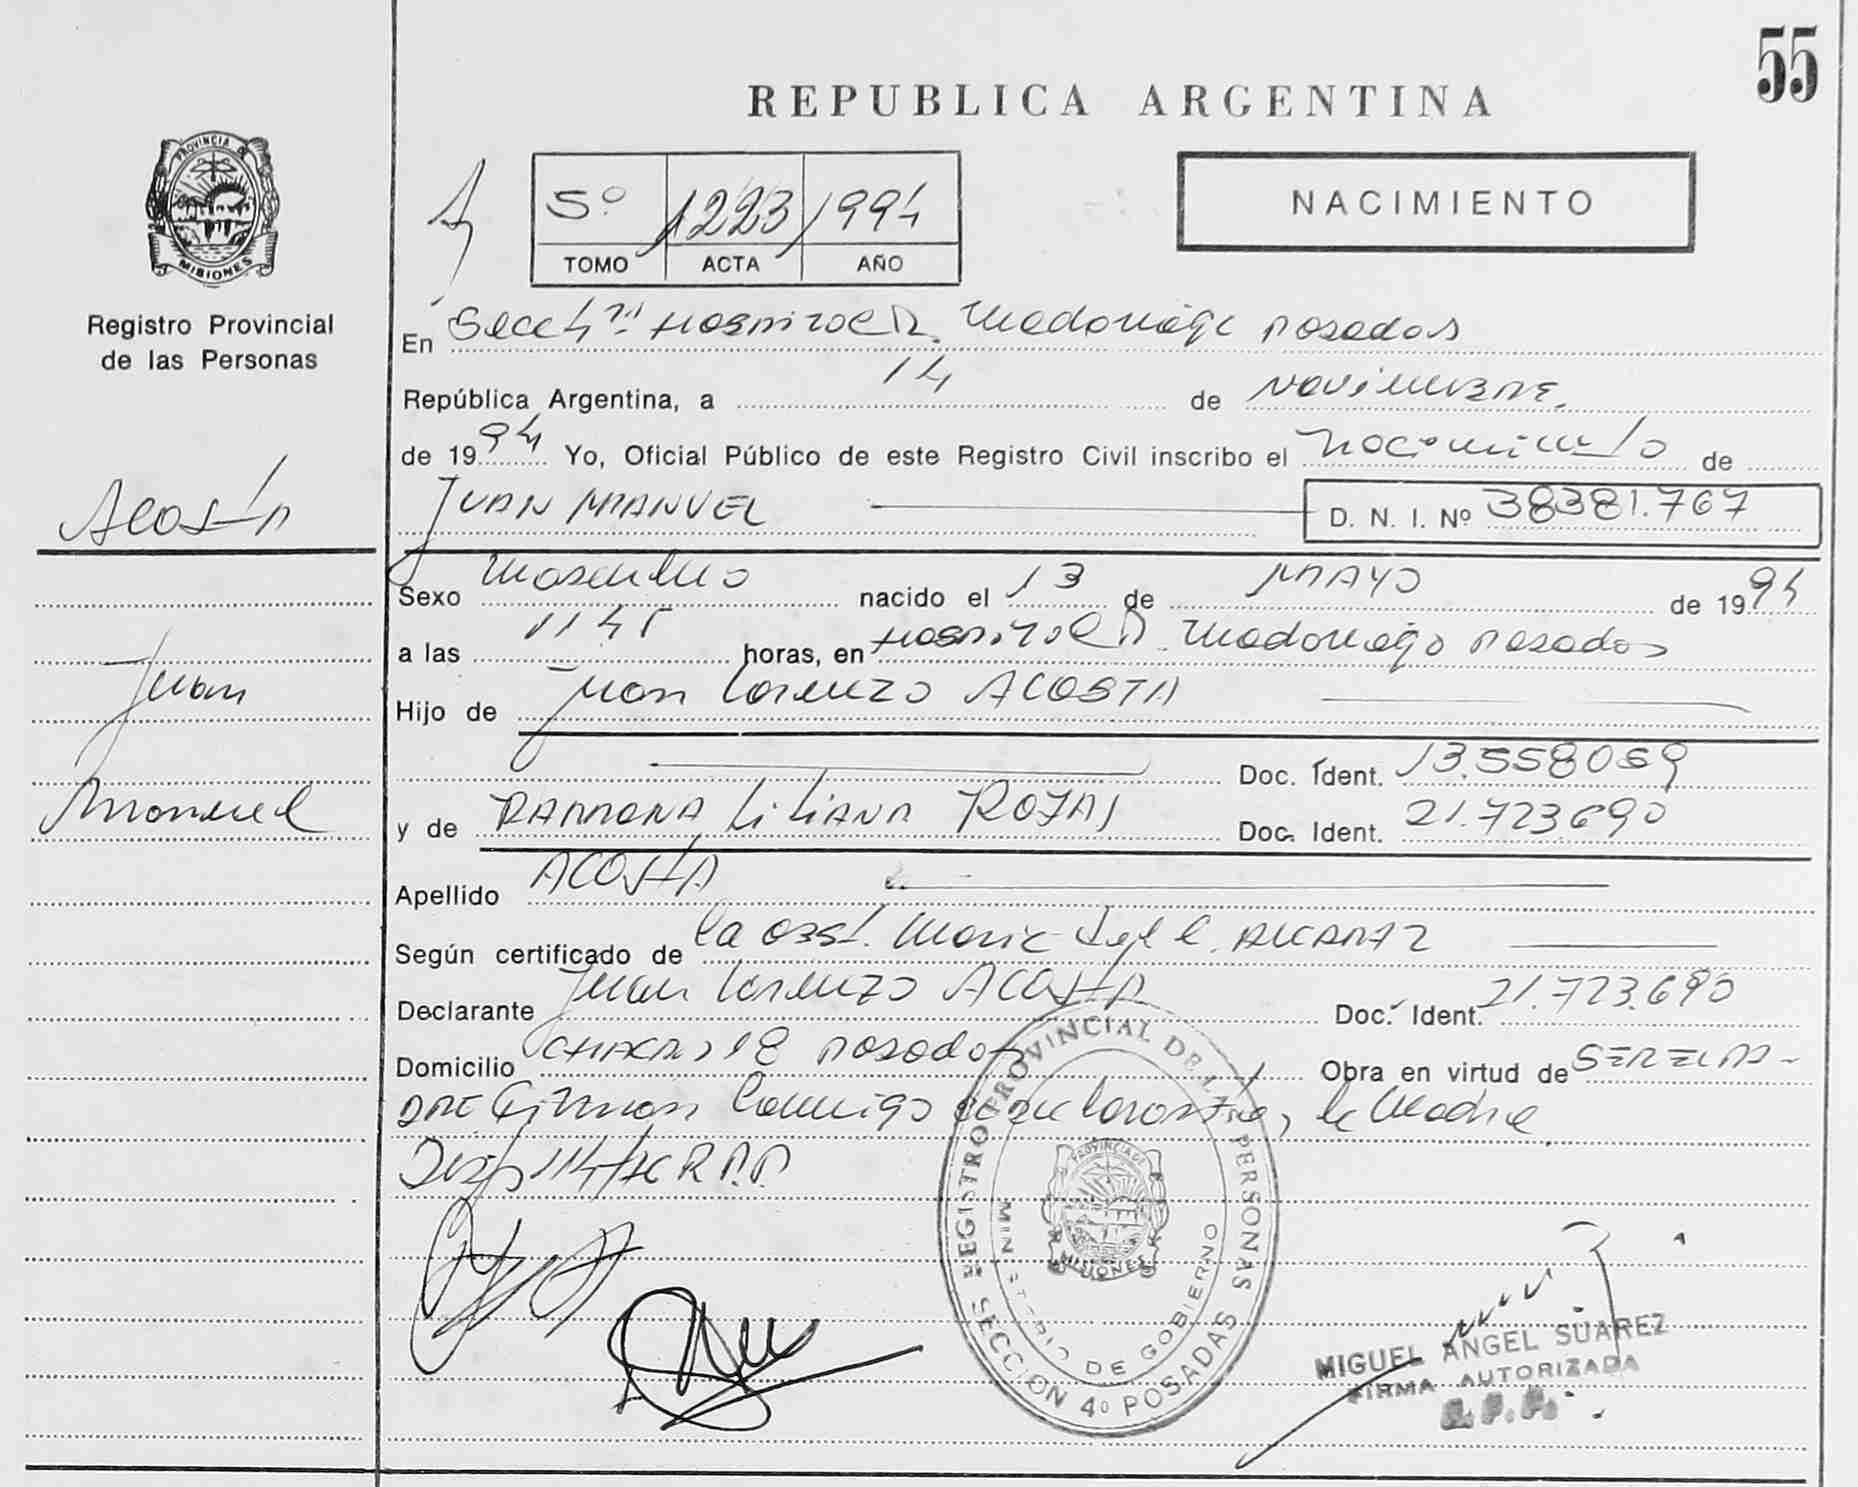 55
REPUBLICA ARGENTINA
PROVINCIA DE
MISIONES
Registro Provincial
de las Personas
5º 1223 1994
TOMO ACTA AÑO
NACIMIENTO
En Secc 4ta Hospital R. Madariaga Posadas
República Argentina, a 14 de Noviembre
de 1994 Yo, Oficial Público de este Registro Civil inscribo el Nacimiento de
JUAN MANUEL D. N. I. Nº 38381.767
Acosta
Juan
Manuel
Sexo Masculino nacido el 13 de MAYO de 1994
a las 1145 horas, en Hospital R. Madariaga Posadas
Hijo de Juan Lorenzo ACOSTA
Doc. Ident. 13.558069
y de RAMONA LiLiana ROJAS Doc. Ident. 21.723.690
Apellido ACOSTA
Según certificado de la Obst. ALCARAZ
Declarante Juan Lorenzo ACOSTA Doc. Ident. 21.723.690
Domicilio Posadas Obra en virtud de SER EL PA-
DRE Firman Conmigo el declarante, la Madre
Disp 114/
REGISTRO PROVINCIAL DE LAS PERSONAS
MINISTERIO DE GOBIERNO
PROVINCIA DE
MISIONES
SECCION 4º POSADAS
MIGUEL ANGEL SUAREZ
FIRMA AUTORIZADA
R.P.P.